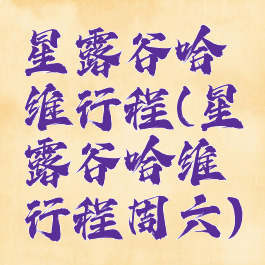 星露谷哈
维行程(星
露谷哈维
行程周六)